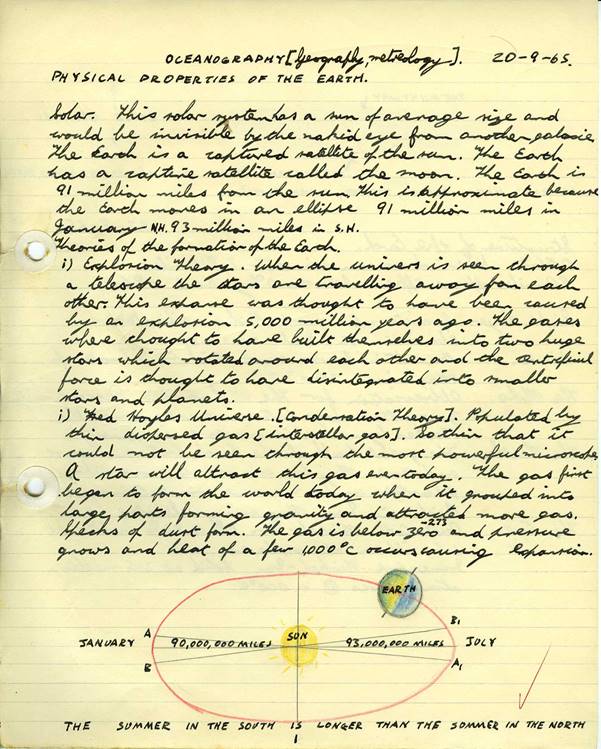 OCEANOGRAPHY [Geography, metreology]. 20-9-65.
PHYSICAL PROPERTIES OF THE EARTH.
Solar. This solar system has a sun of average size and
would be invisible by the nakid eye from another galasie
The Earth is a captured satellite of the sun. The Earth
has a captive satellite called the moon. The Earth is
91 million miles from the sun. This is approximate because
the Earth moves in an ellipse 91 million miles in
January N.H. 93 million miles in S.H.
Theories of the formation of the Earth.
i) Explosion Theory. When the univers is seen through
a telescope the stars are travelling away from each
other. This expanse was thought to have been caused
by an explosion 5,000 million years ago. The gases
where thought to have built themselves into two huge
stars which rotated around each other and the
force is thought to have disintegrated into smaller
stars and planets.
i) Fred Hoyles Universe. [Condensation Theory]. Populated by
thin dispersed gas [interstellar gas]. So thin that it
could not be seen through the most powerful microscope
A star will attract this gas even today. The gas first
began to form the world today when it grouped into
large parts forming gravity and attracted more gas.
Specks of dust form. The gas is below zero -273 and pressure
grows and heat of a few 1,000°C occurs causing expansion.
EARTH
JANUARY A 90,000,000 MILES SUN 93,000,000 MILES B1 JULY
B A1
THE SUMMER IN THE SOUTH IS LONGER THAN THE SUMMER IN THE NORTH
1